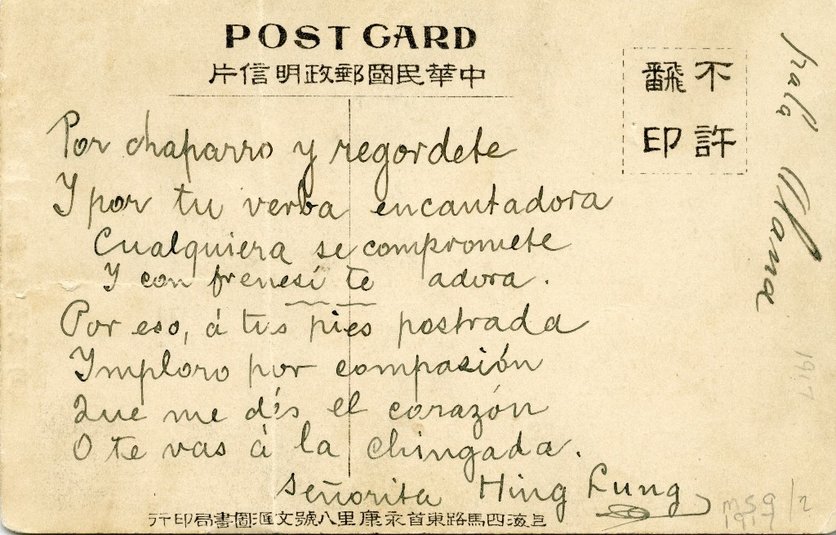 POST CARD
中華民國郵政明信片
不許
翻印
Por chaparro y regordete
Y por tu verba encantadora
Cualquiera se compromete
Y con frenesí te adora.
Por eso, á tus pies postrada
Ymploro por compasión
Que me dés el corazón
O te vas á la chingada.
Señorita Hing Lung
上海四馬路東首永康里八號文滙圖書局印行
1917
msg/2
1917